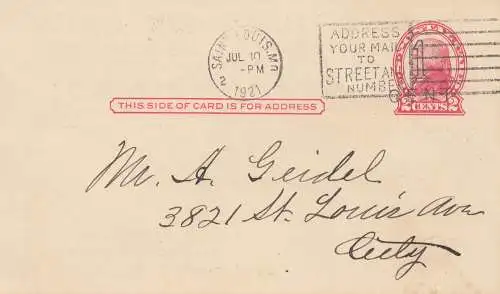 SAINT LOUIS, MO
JUL 10
-PM
2 1921
ADDRESS
YOUR MAIL
TO
STREET AND
NUMBER
2 CENTS 2
THIS SIDE OF CARD IS FOR ADDRESS
Mr. A. Geidel
3821 St. Louis Ave
City